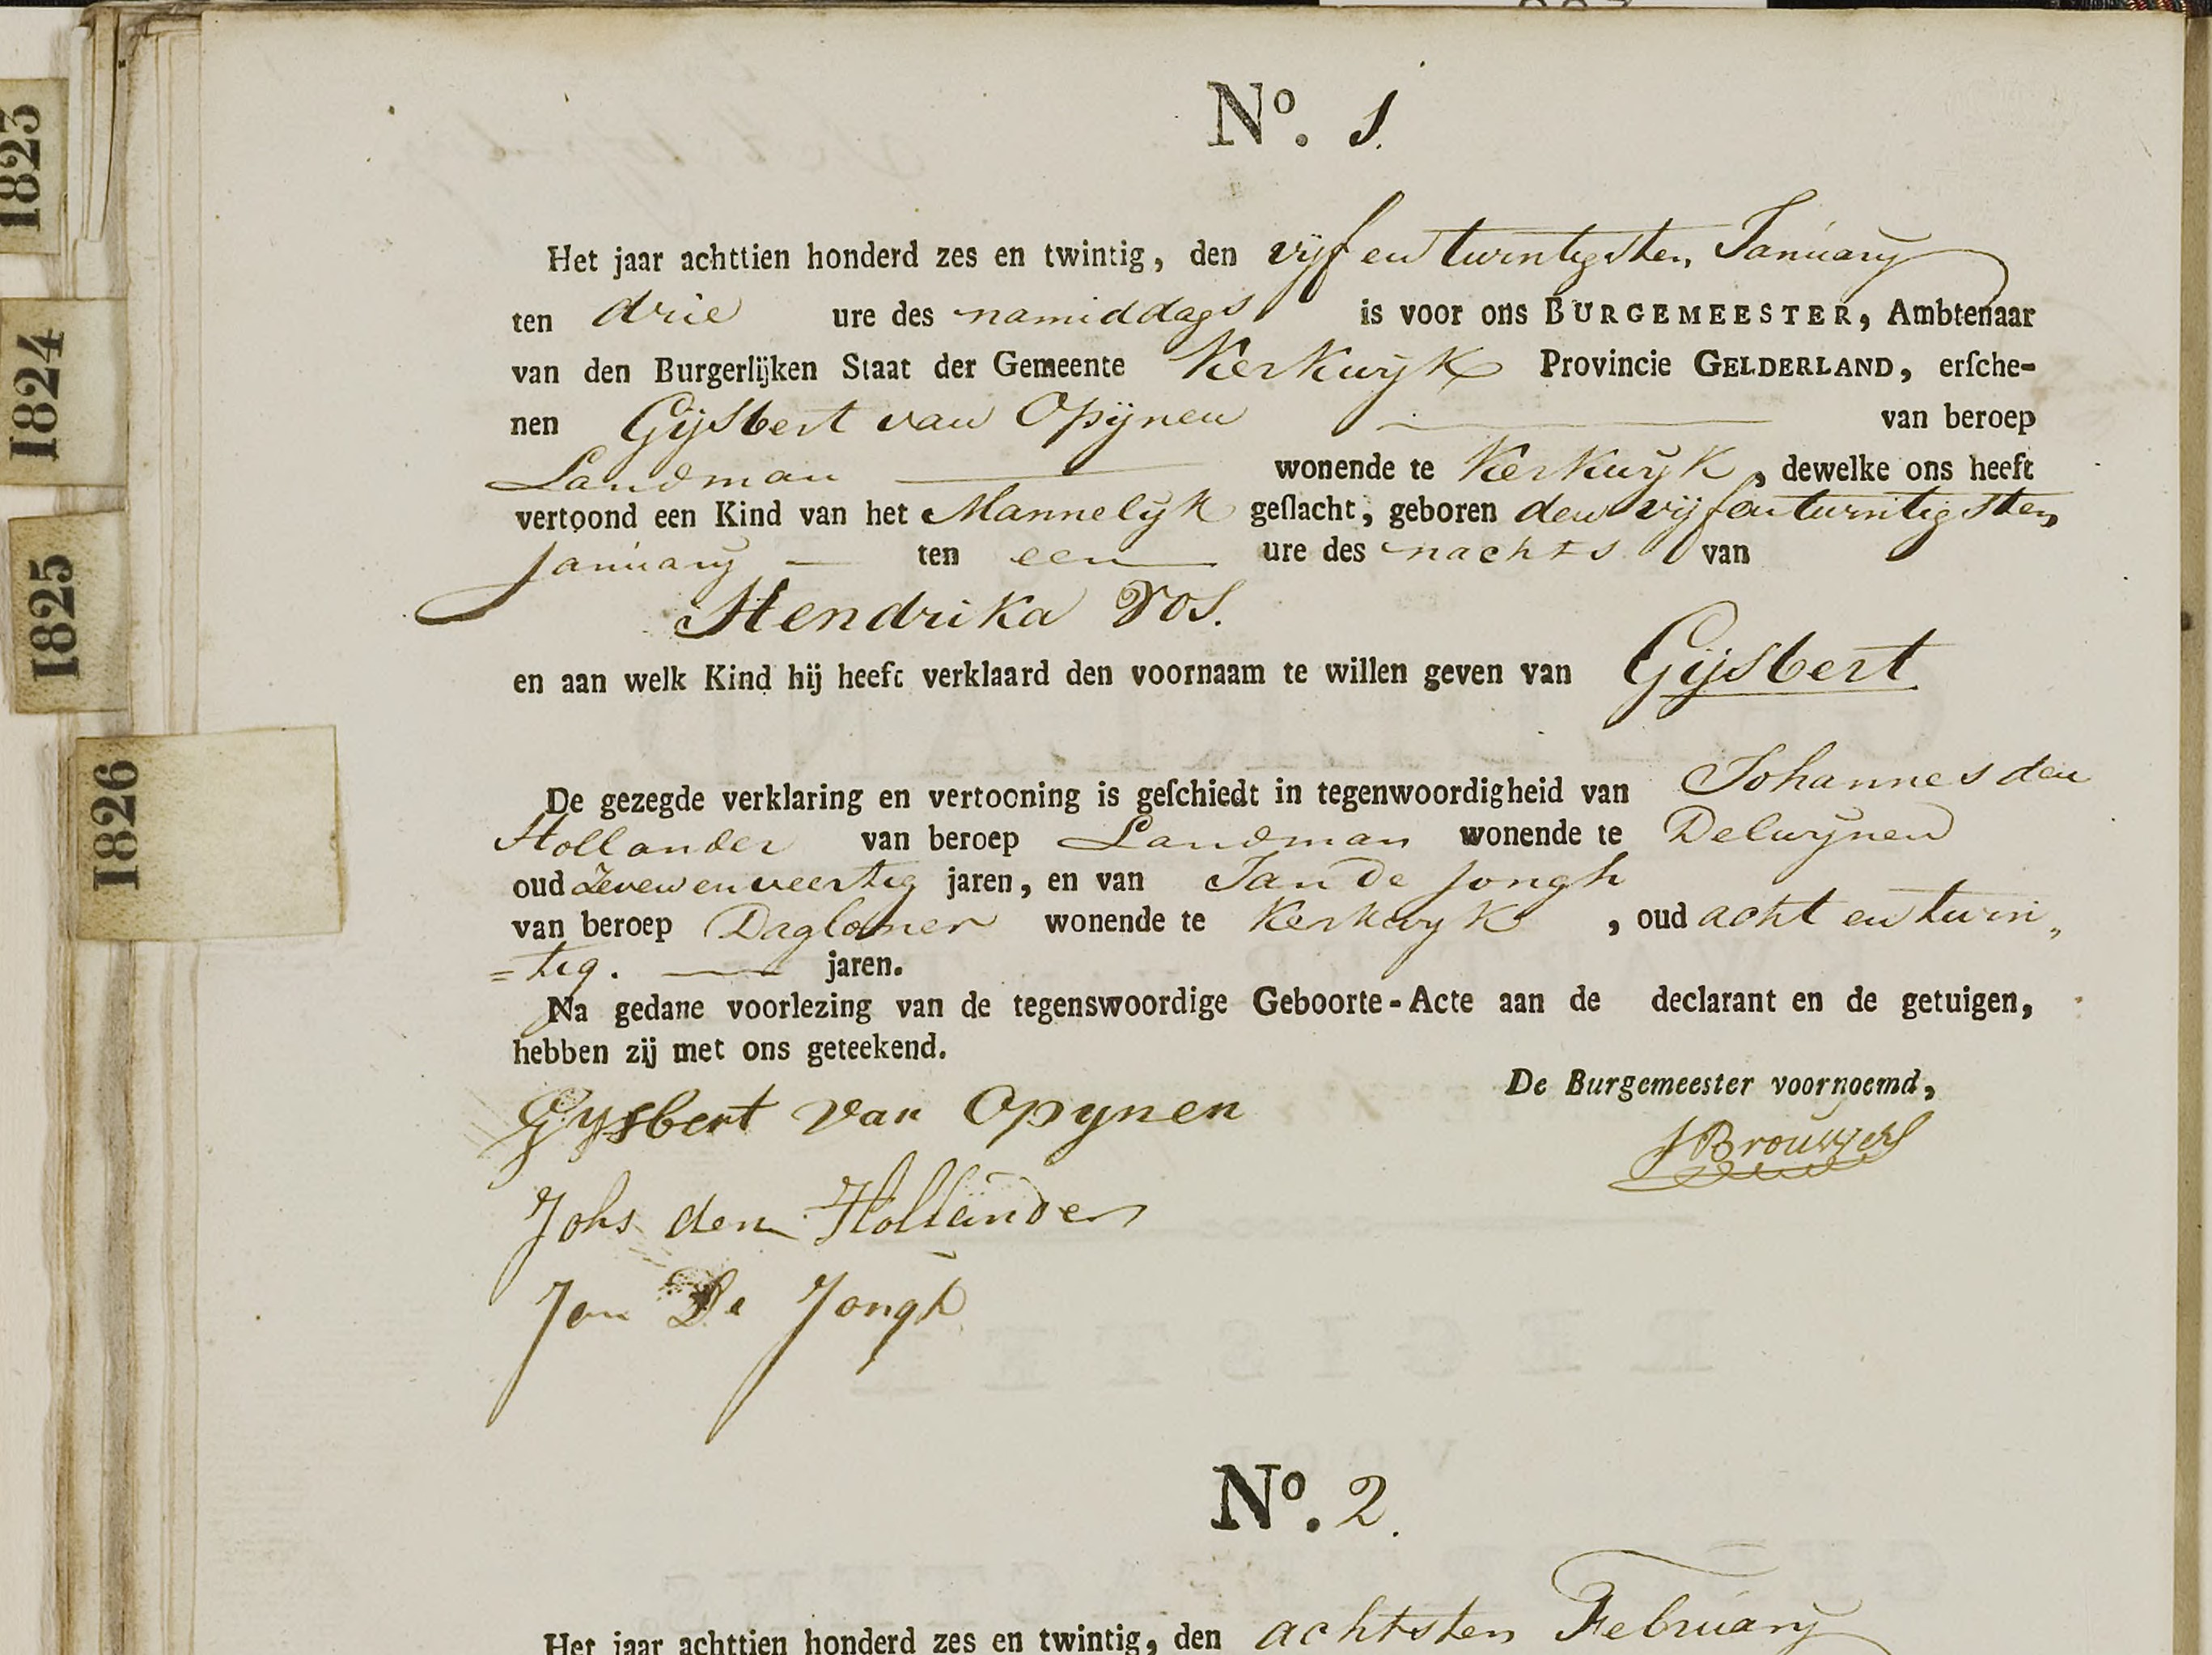 1823
1824
1825
1826
No. 1.
Het jaar achttien honderd zes en twintig, den vijf en twintigsten January
ten drie ure des namiddags is voor ons BURGEMEESTER, Ambtenaar
van den Burgerlijken Staat der Gemeente Kerkwijk Provincie GELDERLAND, erſche-
nen Gijsbert van Opijnen van beroep
Landman wonende te Kerkwijk, dewelke ons heeft
vertoond een Kind van het Mannelijk geſlacht, geboren den vijf en twintigsten
january ten een ure des nachts van
Hendrika Vos.
en aan welk Kind hij heeft verklaard den voornaam te willen geven van Gijsbert
De gezegde verklaring en vertooning is geſchiedt in tegenwoordigheid van Johannes den
Hollander van beroep Landman wonende te Delwijnen
oud zeven en veertig jaren, en van Jan de Jongh
van beroep Dagloner wonende te Kerkwyk, oud acht en twin„
=tig. jaren.
Na gedane voorlezing van de tegenswoordige Geboorte-Acte aan de declarant en de getuigen,
hebben zij met ons geteekend.
De Burgemeester voornoemd,
Gysbert van Opynen
JBrouwers
Johs den Hollander
Jan De Jongh
No. 2.
Het jaar achttien honderd zes en twintig, den achtsten February